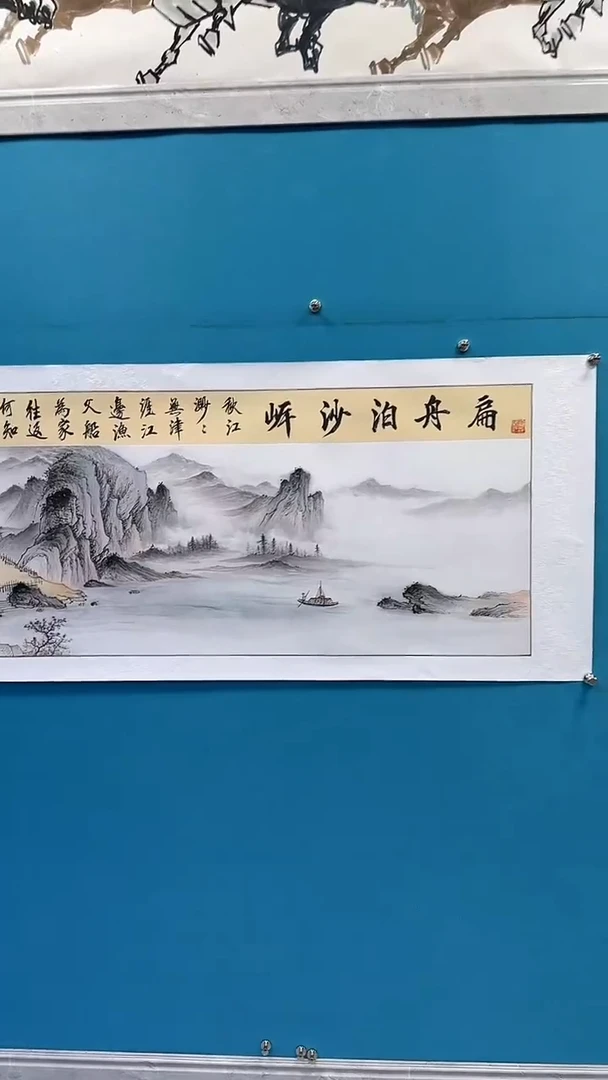 扁舟泊沙岍
秋江
渺〻
無津
涯江
邊漁
父船
為家
往返
何知